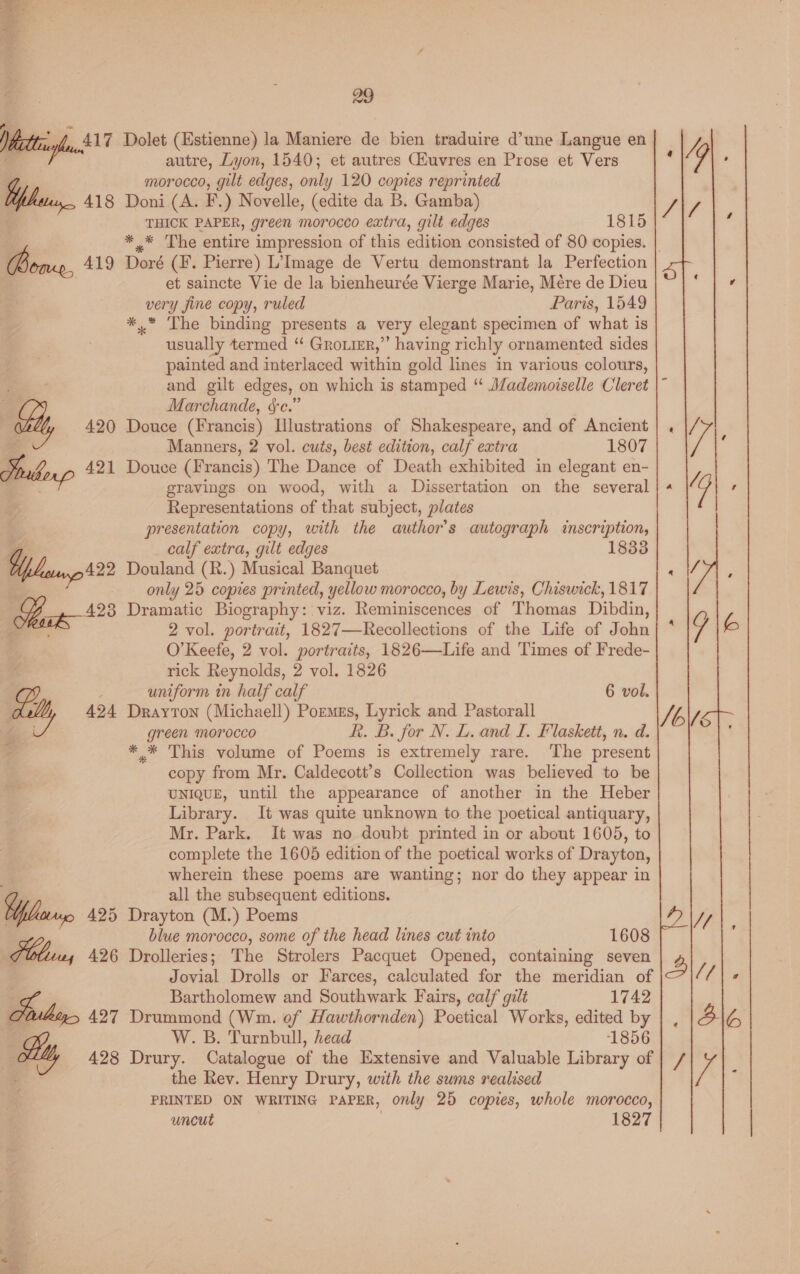 29
417 Dolet (Estienne) la Maniere de bien traduire d'une Langue en
autre, Lyon, 1540; et autres Œuvres en Prose et Vers
morocco, gilt edges, only 120 copies reprinted
418 Doni (A. F.) Novelle, (edite da B. Gamba)
THICK PAPER, green morocco extra, gilt edges 1815
*⁎* The entire impression of this edition consisted of 80 copies.
Boone 419 Doré (F. Pierre) L'Image de Vertu demonstrant la Perfection
et saincte Vie de la bienheurée Vierge Marie, Mére de Dieu
very fine copy, ruled Paris, 1549
*⁎* The binding presents a very elegant specimen of what is
usually termed “ GROLIER,” having richly ornamented sides
painted and interlaced within gold lines in various colours,
and gilt edges, on which is stamped “ Mademoiselle Cleret
Marchande, &c.”
Lilly 420 Douce (Francis) Illustrations of Shakespeare, and of Ancient
Manners, 2 vol. cuts, best edition, calf extra 1807
421 Douce (Francis) The Dance of Death exhibited in elegant en-
gravings on wood, with a Dissertation on the several
Representations of that subject, plates
presentation copy, with the author's autograph inscription,
calf extra, gilt edges 1833
422 Douland (R.) Musical Banquet
only 25 copies printed, yellow morocco, by Lewis, Chiswick, 1817
423 Dramatic Biography: viz. Reminiscences of Thomas Dibdin,
2 vol. portrait, 1827—Recollections of the Life of John
O'Keefe, 2 vol. portraits, 1826—Life and Times of Frede-
rick Reynolds, 2 vol. 1826
uniform in half calf 6 vol.
Lilly 424 DRAYTON (Michaell) POEMES, Lyrick and Pastorall
green morocco R. B. for N. L. and I. Flaskett, n. d.
*⁎* This volume of Poems is extremely rare. The present
copy from Mr. Caldecott's Collection was believed to be
UNIQUE, until the appearance of another in the Heber
Library. It was quite unknown to the poetical antiquary,
Mr. Park. It was no doubt printed in or about 1605, to
complete the 1605 edition of the poetical works of Drayton,
wherein these poems are wanting; nor do they appear in
all the subsequent editions.
425 Drayton (M.) Poems
blue morocco, some of the head lines cut into 1608
426 Drolleries; The Strolers Pacquet Opened, containing seven
Jovial Drolls or Farces, calculated for the meridian of
Bartholomew and Southwark Fairs, calf gilt 1742
427 Drummond (Wm. of Hawthornden) Poetical Works, edited by
W. B. Turnbull, head 1856
Lilly 428 Drury. Catalogue of the Extensive and Valuable Library of
the Rev. Henry Drury, with the sums realised
PRINTED ON WRITING PAPER, only 25 copies, whole morocco,
uncut 1827